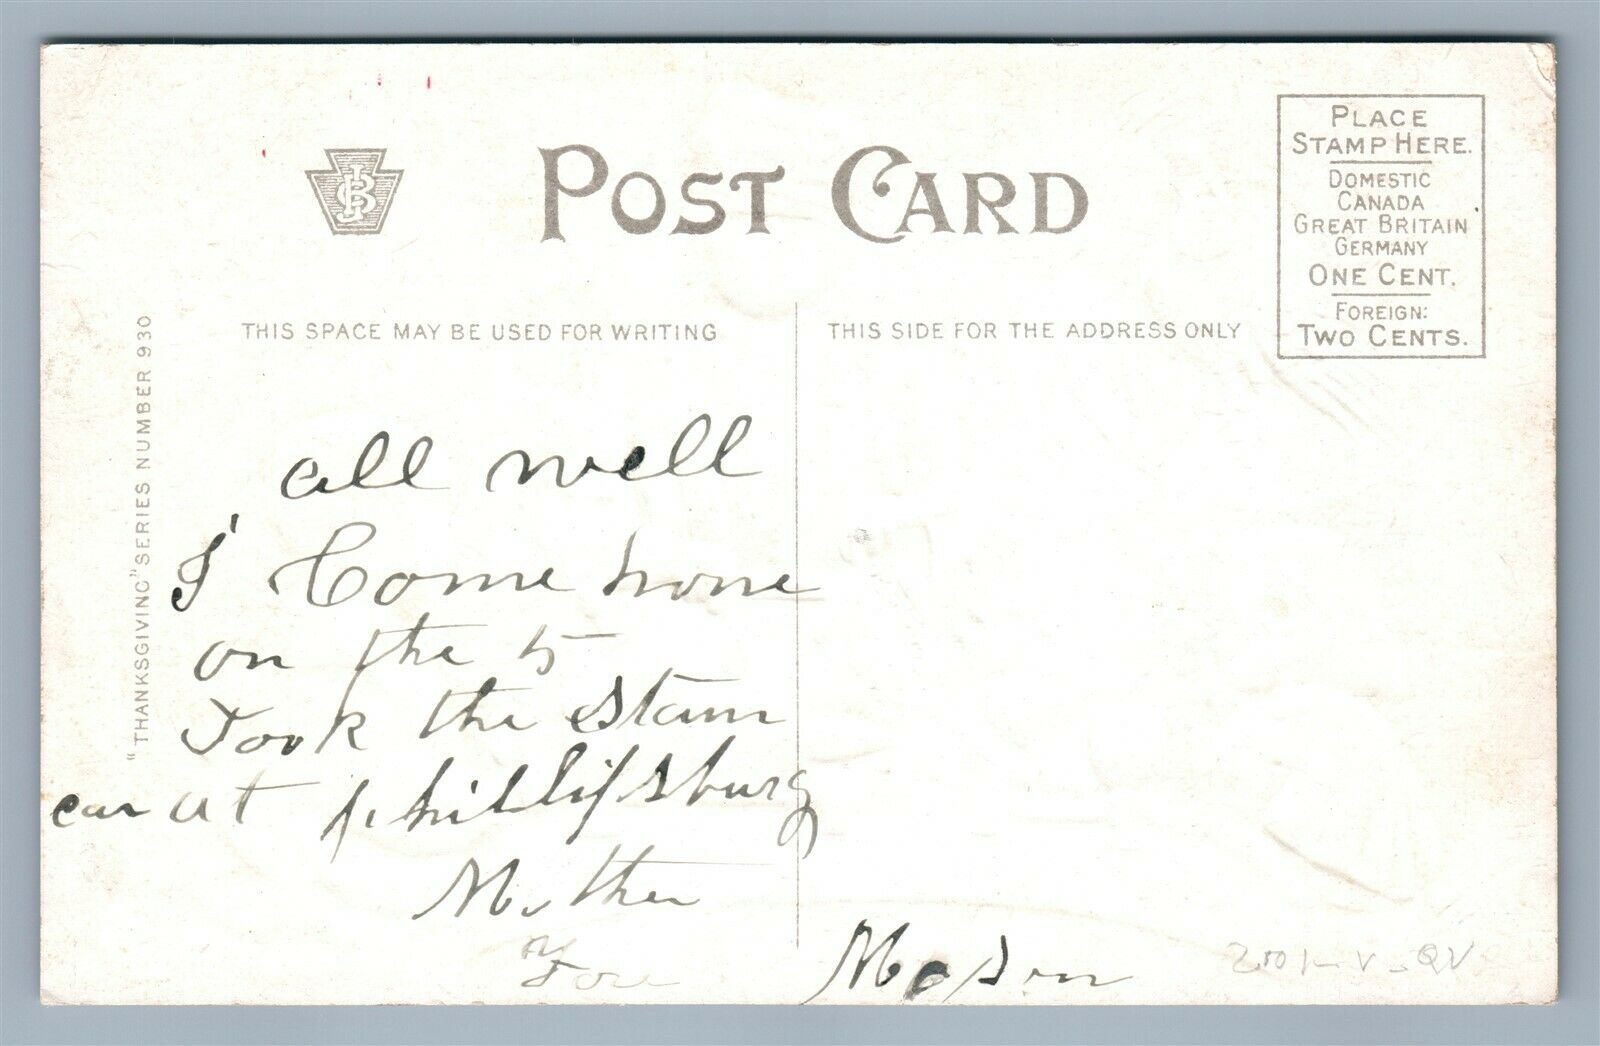 POST CARD
PLACE
STAMP HERE.
DOMESTIC
CANADA
GREAT BRITAIN
GERMANY
ONE CENT.
FOREIGN:
TWO CENTS.
THIS SPACE MAY BE USED FOR WRITING
THIS SIDE FOR THE ADDRESS ONLY
"THANKSGIVING" SERIES NUMBER 930
all well
I Come home
on the 5
Took the steam
car at phillipsburg
Mother
Mason